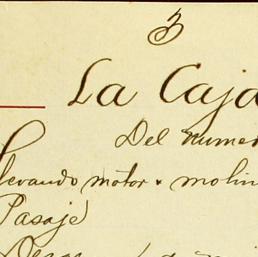 3
La Caja
Del numer
levando motor x molin
Pasaje